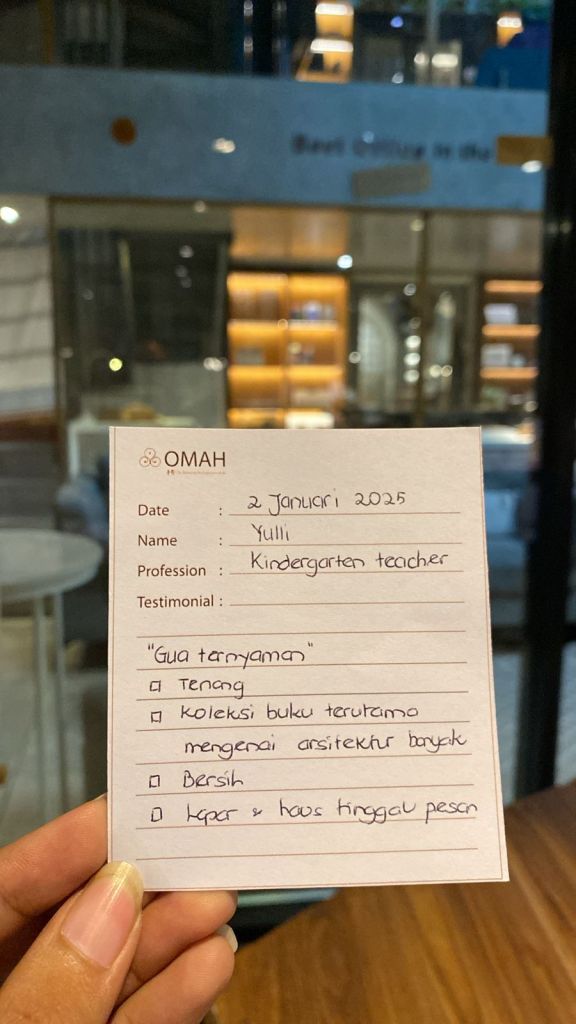 Best Office in the
OMAH
Date : 2 Januari 2025
Name : Yulli
Profession : Kindergarten teacher
Testimonial :
"Gua ternyaman"
□ Tenang
□ Koleksi buku terutama
mengenai arsitektur banyak
□ Bersih
□ Lapar & haus tinggal pesan